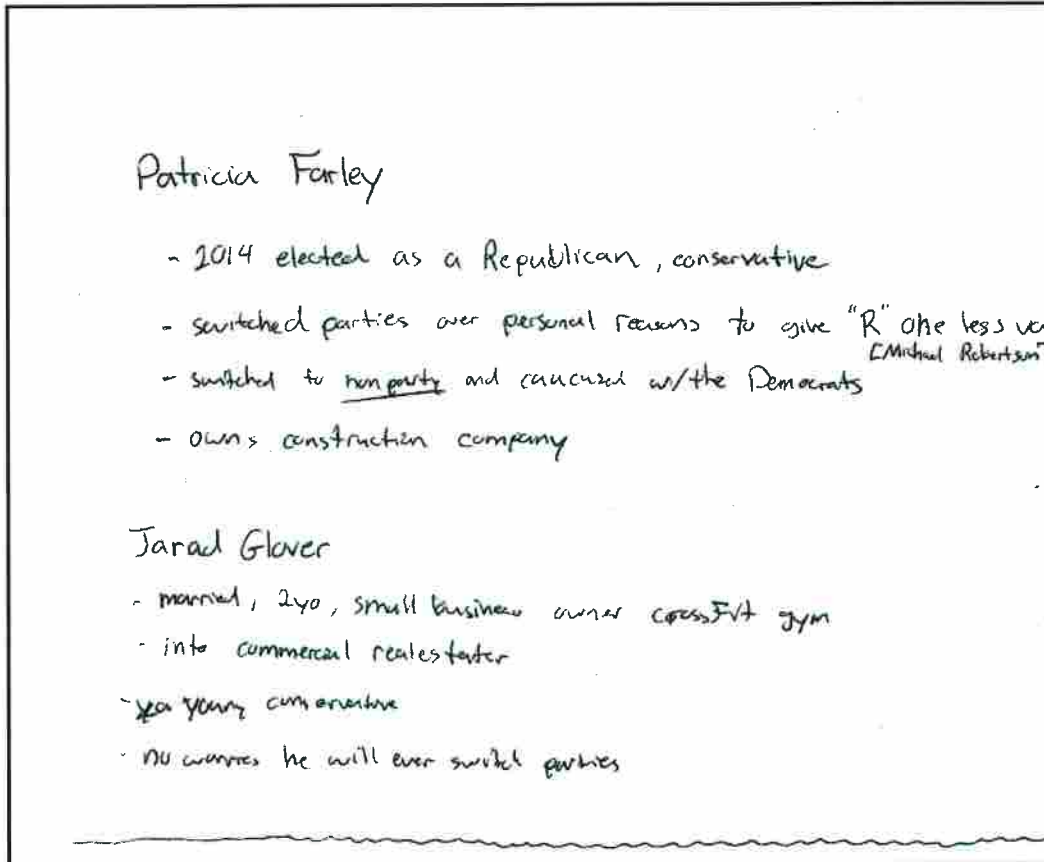 Patricia Farley
- 2014 elected as a Republican, conservative
- switched parties over personal reasons to give "R" one less
[Michael Robertson
- switched to non party and caucused w/the Democrats
- owns construction company
Jarad Glover
- married, 2yo, small business owner crossFit gym
- into commercial realestater
- a young conservative
- no worries he will ever switch parties